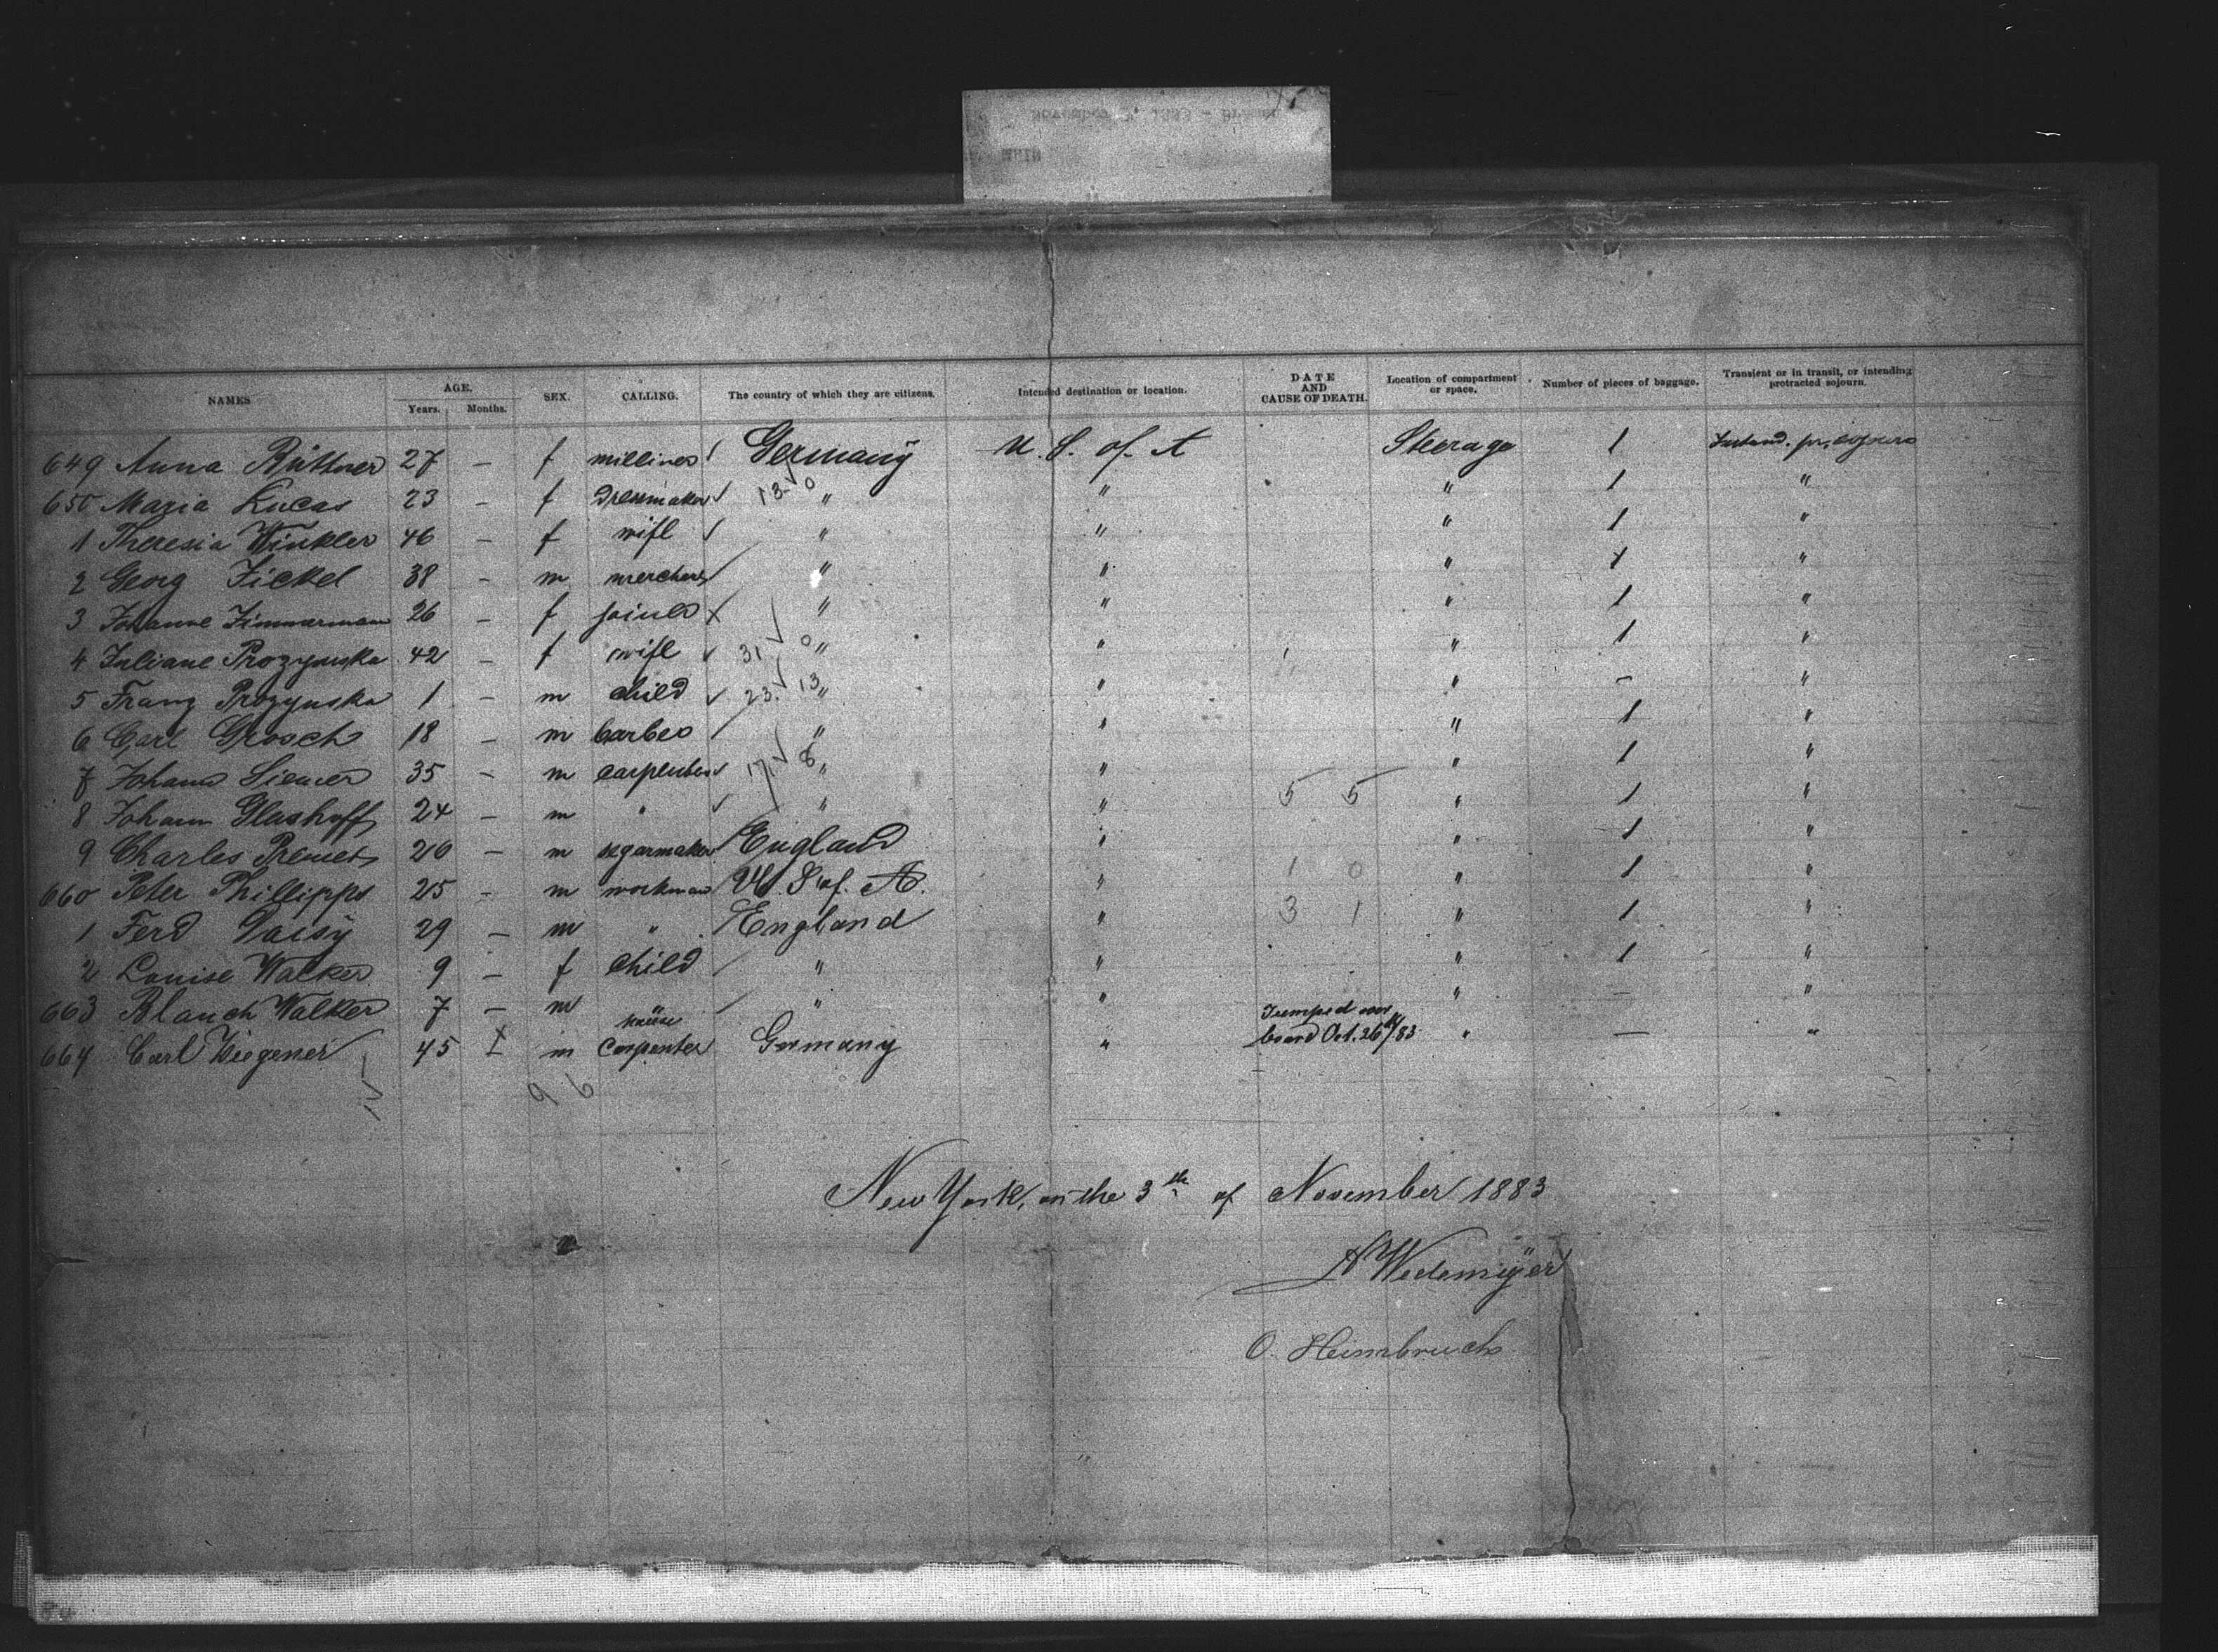 NAMES AGE. Years. Months. SEX. CALLING. The country of which they are citizens. Intended destination or location. DATE AND CAUSE OF DEATH. Location of compartment or space. Number of pieces of baggage. Transient or in transit, or intending protracted sojourn.
649 Anna Rüttner 27 — f milliner Germany U. S. of A Steerage 1
650 Maria Lucas 23 — f dressmaker " " " 1 "
1 Theresia Winkler 46 — f wife " " " 1 "
2 Georg Fickel 38 — m merchant " " " 1 "
3 Johanne Zimmermann 26 — f joiner " " " 1 "
4 Juliane Prozynska 42 — f wife " " " 1 "
5 Franz Prozynska 1 — m child " " " — "
6 Carl Grosch 18 — m barber " " " 1 "
7 Johann Siemer 35 — m carpenter " " " 1 "
8 Johann Glashoff 24 — m " " " " 1 "
9 Charles Premet 20 — m segarmaker England " " 1 "
660 Peter Phillipps 25 — m workman U. S. of. A. " " 1 "
1 Ferd Daisy 29 — m " England " " 1 "
2 Louise Walker 9 — f child " " " 1 "
663 Blanch Walker 7 — m " " " — "
664 Carl Wiegener 45 m Carpenter Germany " Jumped over board Oct. 26th/83 " — "
9 6
New York, on the 3th of November 1883
A Wedemeyer
O. Heimbruch